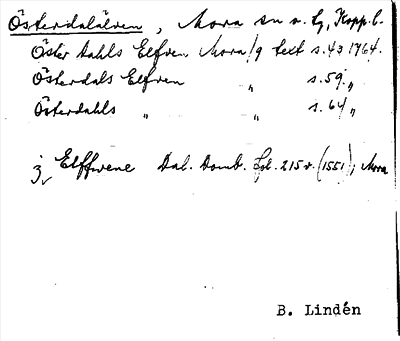 Österdalälven, Mora sn o. tg, Kopp. l.
Öster dahls Elfven Mora/g text s. 43 1764.
Österdals Elfven „ s. 59 „
Österdahls „ „ s. 64 „
j Elffwene Dal. Domb. fol. 215 v. (1551), Mora
B. Lindén